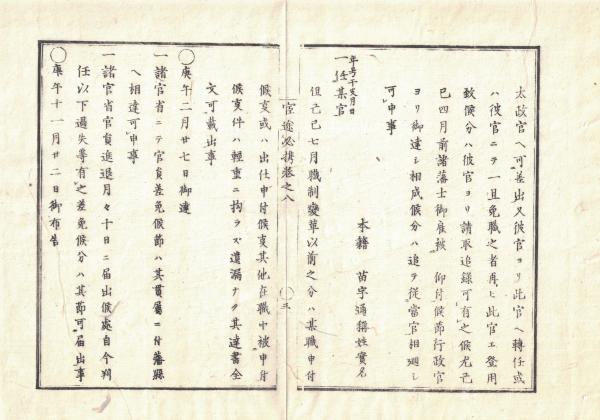 太政官へ可差出又彼官ヨリ此官へ轉任或
ハ彼官ニテ一旦免職之者再ヒ此官エ登用
致候分ハ彼官ヨリ請取追錄可有之候尤己
巳四月前諸藩士御雇被 仰付候節行政官
ヨリ御達シ相成候分ハ追テ從當官相廻シ
可申事
本籍 苗字通稱姓實名
年号干支月日
一任某官
但己巳七月職制變革以前之分ハ某職申付
官途必携卷之八 〇三
候亥或ハ出仕申付候亥其他在職中被申付
候亥件ハ輕重ニ拘ラス遺漏ナク其達書全
文可載出事
〇庚午二月廿七日御達
一諸官省ニテ官員差免候節ハ其貫屬ニ付藩縣
へ相達可申事
一諸官省官員進退月々十日ニ届出候處自今判
任以下過失等有之差免候分ハ其節可届出事
〇庚午十一月廿二日御布告